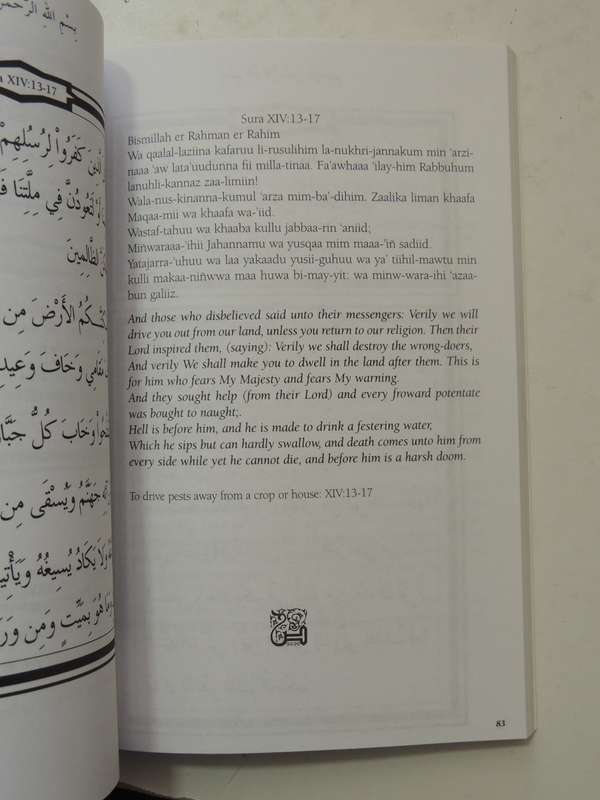 بِسْمِ اللهِ الرَّحْمٰنِ
XIV:13-17
كَفَرُواْ لِرُسُلِهِمْ
لَتَعُودُنَّ فِي مِلَّتِنَا
الظَّالِمِينَ
الأَرْضَ مِن
مَقَامِي وَخَافَ وَعِيدِ
وَخَابَ كُلُّ
جَهَنَّمُ وَيُسْقَى مِن
وَلاَ يَكَادُ يُسِيغُهُ وَيَأْتِيهِ
هُوَ بِمَيِّتٍ وَمِن
Sura XIV:13-17
Bismillah er Rahman er Rahim
Wa qaalal-laziina kafaruu li-rusulihim la-nukhri-jannakum min ‘arzi-
naaa ‘aw lata’uudunna fii milla-tinaa. Fa’awhaaa ‘ilay-him Rabbuhum
lanuhli-kannaz zaa-limiin!
Wala-nus-kinanna-kumul ‘arza mim-ba’-dihim. Zaalika liman khaafa
Maqaa-mii wa khaafa wa-’iid.
Wastaf-tahuu wa khaaba kullu jabbaa-rin ‘aniid;
Miñwaraaa-’ihii Jahannamu wa yusqaa mim maaa-’iñ sadiid.
Yatajarra-’uhuu wa laa yakaadu yusii-guhuu wa ya’ tiihil-mawtu min
kulli makaa-niñwwa maa huwa bi-may-yit: wa minw-wara-ihi ‘azaa-
bun galiiz.
And those who disbelieved said unto their messengers: Verily we will
drive you out from our land, unless you return to our religion. Then their
Lord inspired them, (saying): Verily we shall destroy the wrong-doers,
And verily We shall make you to dwell in the land after them. This is
for him who fears My Majesty and fears My warning.
And they sought help (from their Lord) and every froward potentate
was bought to naught;.
Hell is before him, and he is made to drink a festering water,
Which he sips but can hardly swallow, and death comes unto him from
every side while yet he cannot die, and before him is a harsh doom.
To drive pests away from a crop or house: XIV:13-17
83